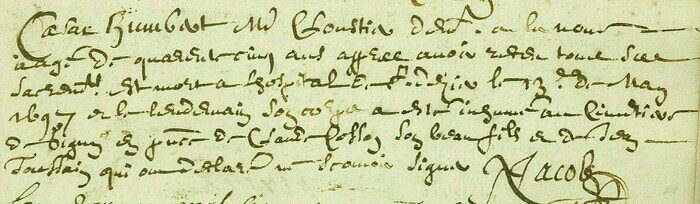 Cesar Humbert Mre Cloustier demt. a la noue
aagé de quarente cinq ans apprez avoir receu tous ses
sacremts. est mort a lhospital de st. dizier le 13e. de May
1697 et le lendemain son corps a esté inhumé au Cimetiere
de Bignu en pnce de Claude Cosson son beau fils et de Jean
Toussain qui ont declaré ne scavoir signer Jacob